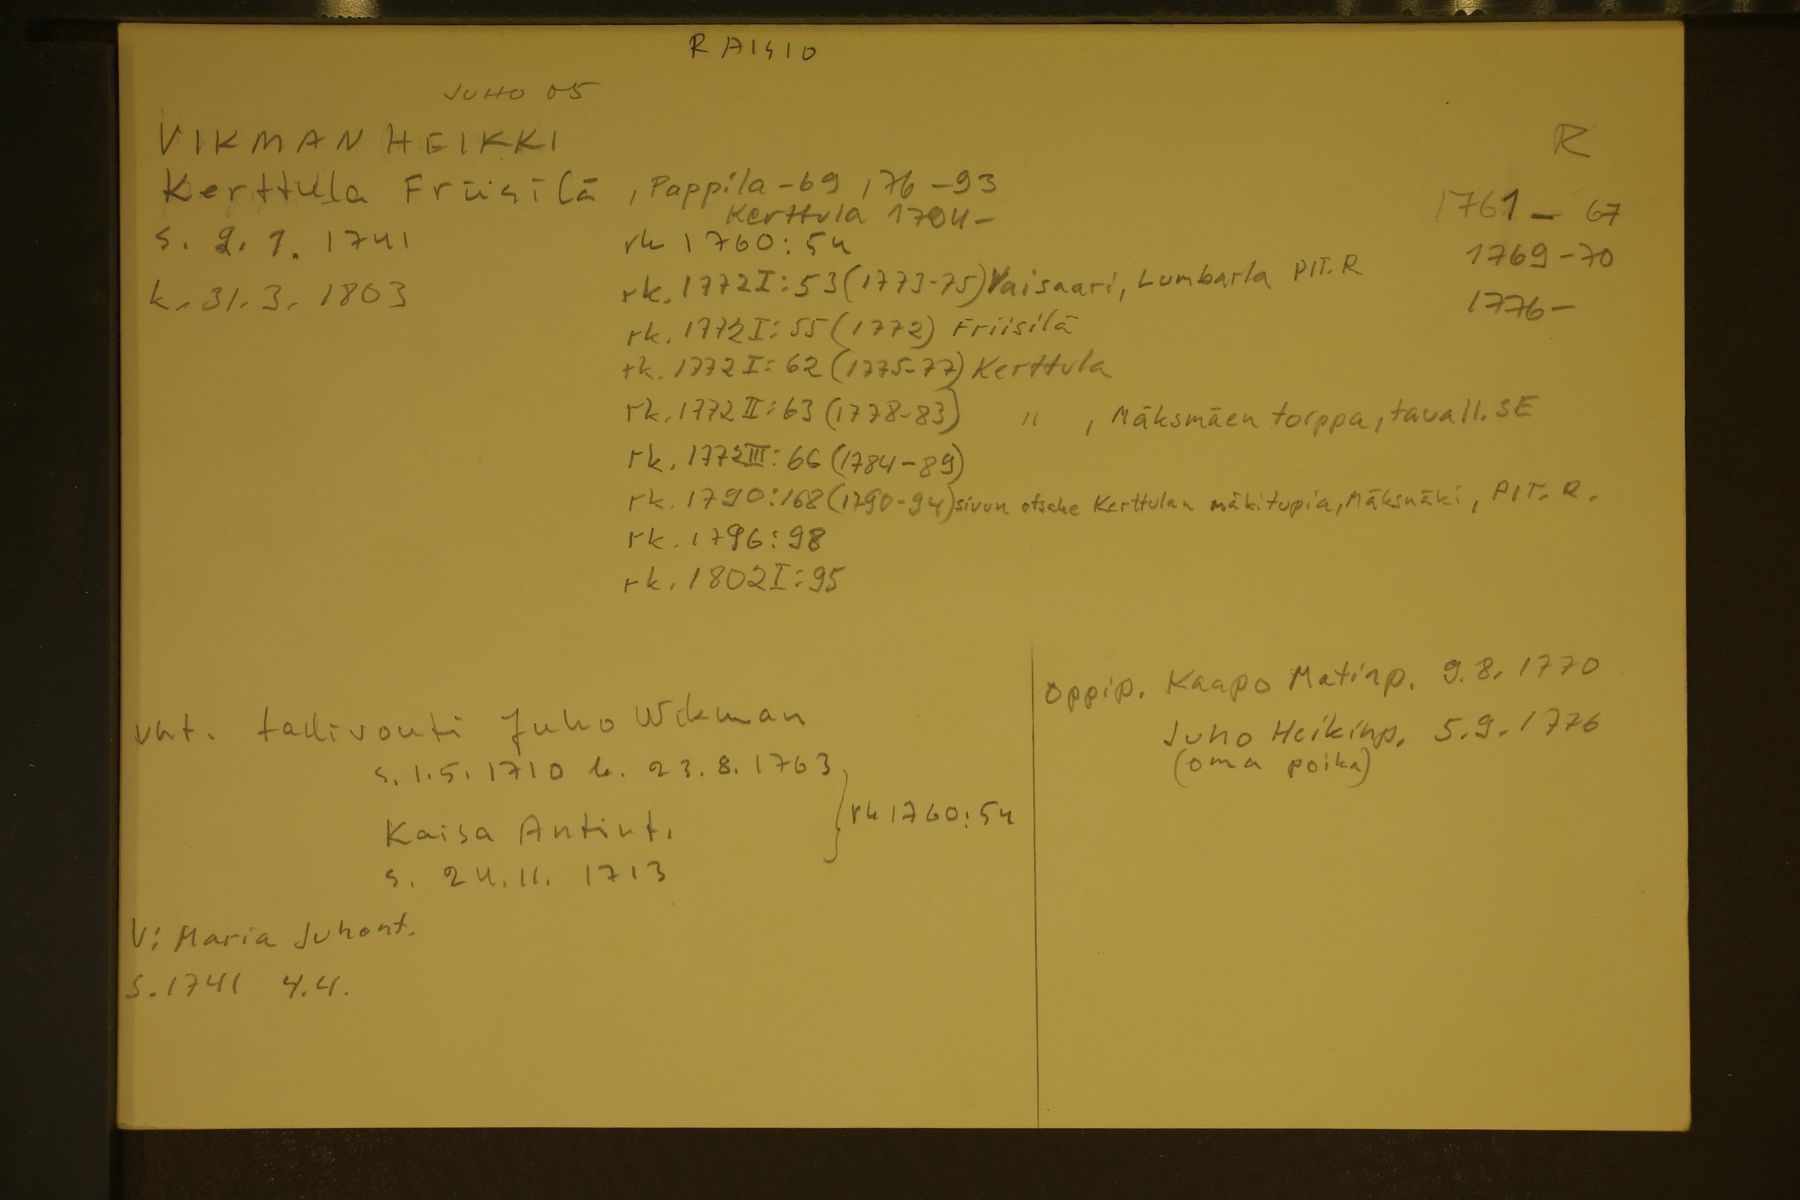 RAISIO
JUHO 05
VIKMAN HEIKKI
R
Kerttula Friisilä, Pappila -69, 76-93
Kerttula 1794-
1761-67
s. 2.1. 1741
rk 1760:54
1769-70
k. 31.3. 1803
rk. 1772 I:53 (1773-75) Vaisaari, Lumbarla PIT. R
1776-
rk. 1772 I:55 (1772) Friisilä
rk. 1772 I:62 (1775-77) Kerttula
rk. 1772 II:63 (1778-83) " , Mäksmäen torppa, tavall. SE
rk. 1772 III:66 (1784-89)
rk. 1790:168 (1790-94) sivun otsake Kerttulan mäkitupia, Mäksmäki, PIT. R.
rk. 1796:98
rk. 1802 I:95
oppip. Kaapo Matinp. 9.8. 1770
Juho Heikinp. 5.9. 1776
(oma poika)
vht. tallivouti Juho Wikman
s. 1.5. 1710 k. 23.8. 1763
rk 1760:54
Kaisa Antint.
s. 24.11. 1713
V: Maria Juhont.
s. 1741 4.4.